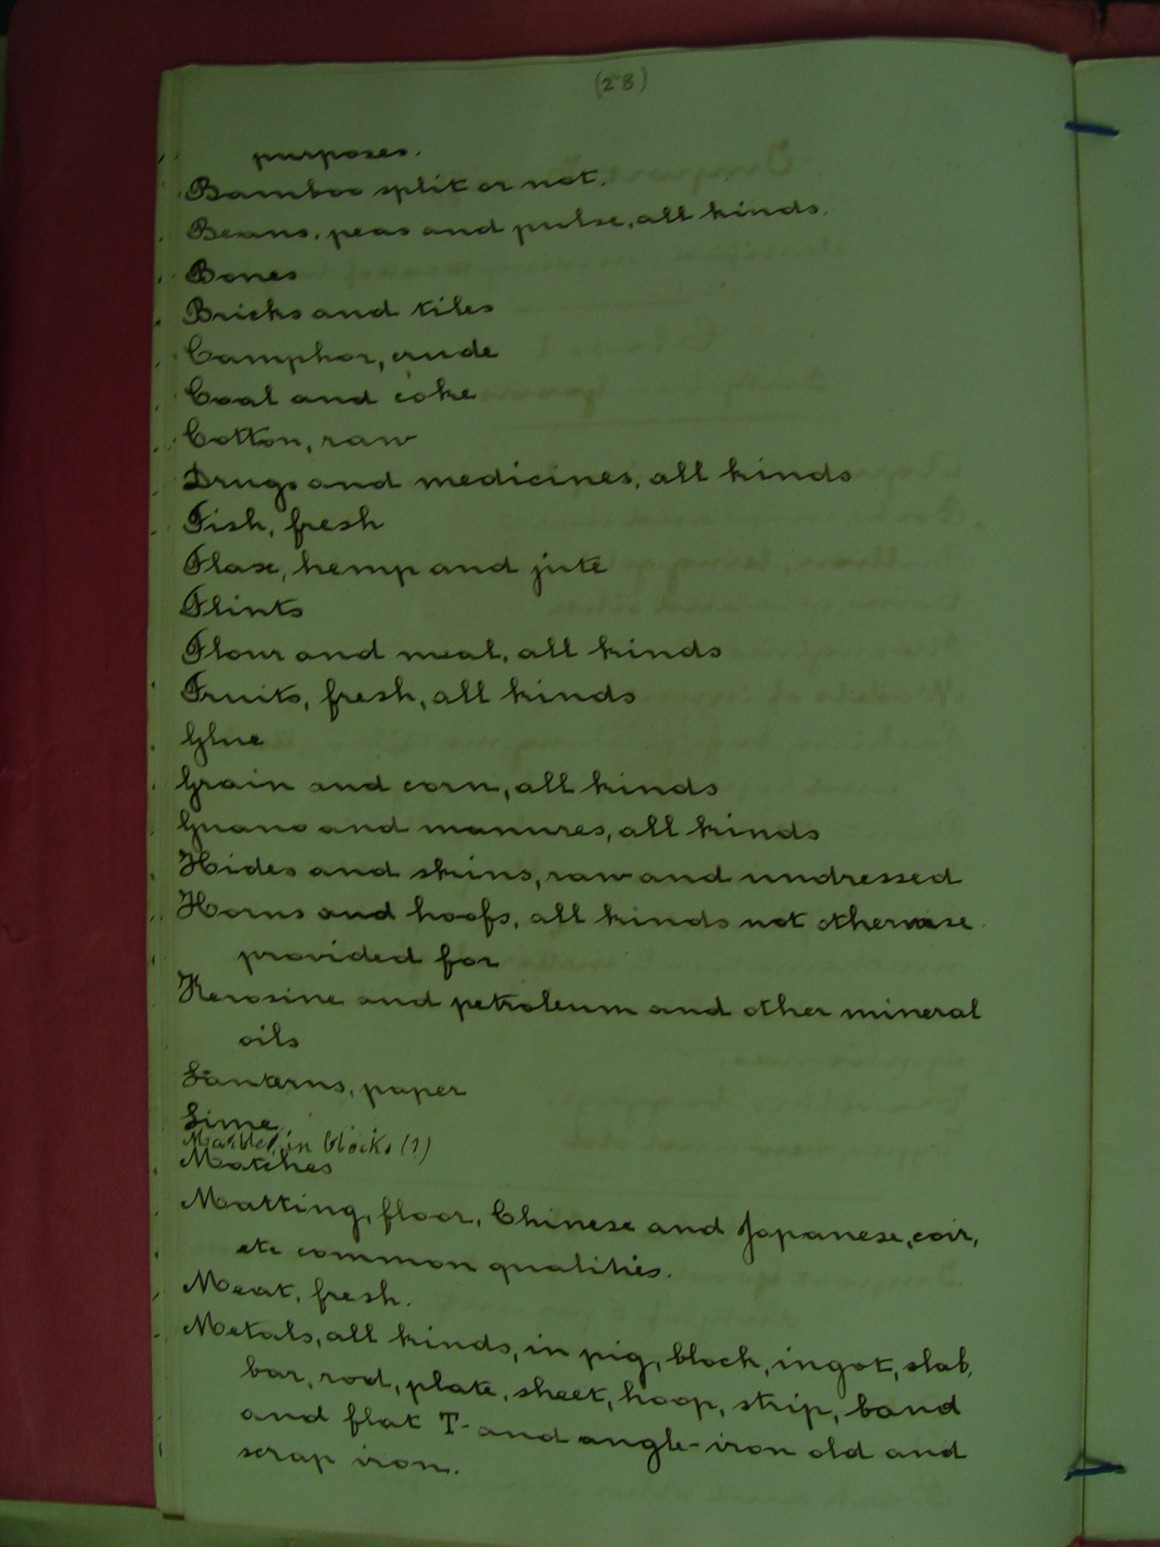 (28)
purposes.
Bamboo split or not.
Beans, peas and pulse, all kinds.
Bones
Bricks and tiles
Camphor, crude
Coal and coke
Cotton, raw
Drugs and medicines, all kinds
Fish, fresh
Flax, hemp and jute
Flints
Flour and meal, all kinds
Fruits, fresh, all kinds
Glue
Grain and corn, all kinds
Guano and manures, all kinds
Hides and skins, raw and undressed
Horns and hoofs, all kinds not otherwise
provided for
Kerosine and petroleum and other mineral
oils
Lanterns, paper
Lime
Marble, in blocks (1)
Matches
Matting, floor, Chinese and Japanese, coir,
etc common qualities.
Meat, fresh.
Metals, all kinds, in pig, block, ingot, slab,
bar, rod, plate, sheet, hoop, strip, band
and flat T- and angle-iron old and
scrap iron.